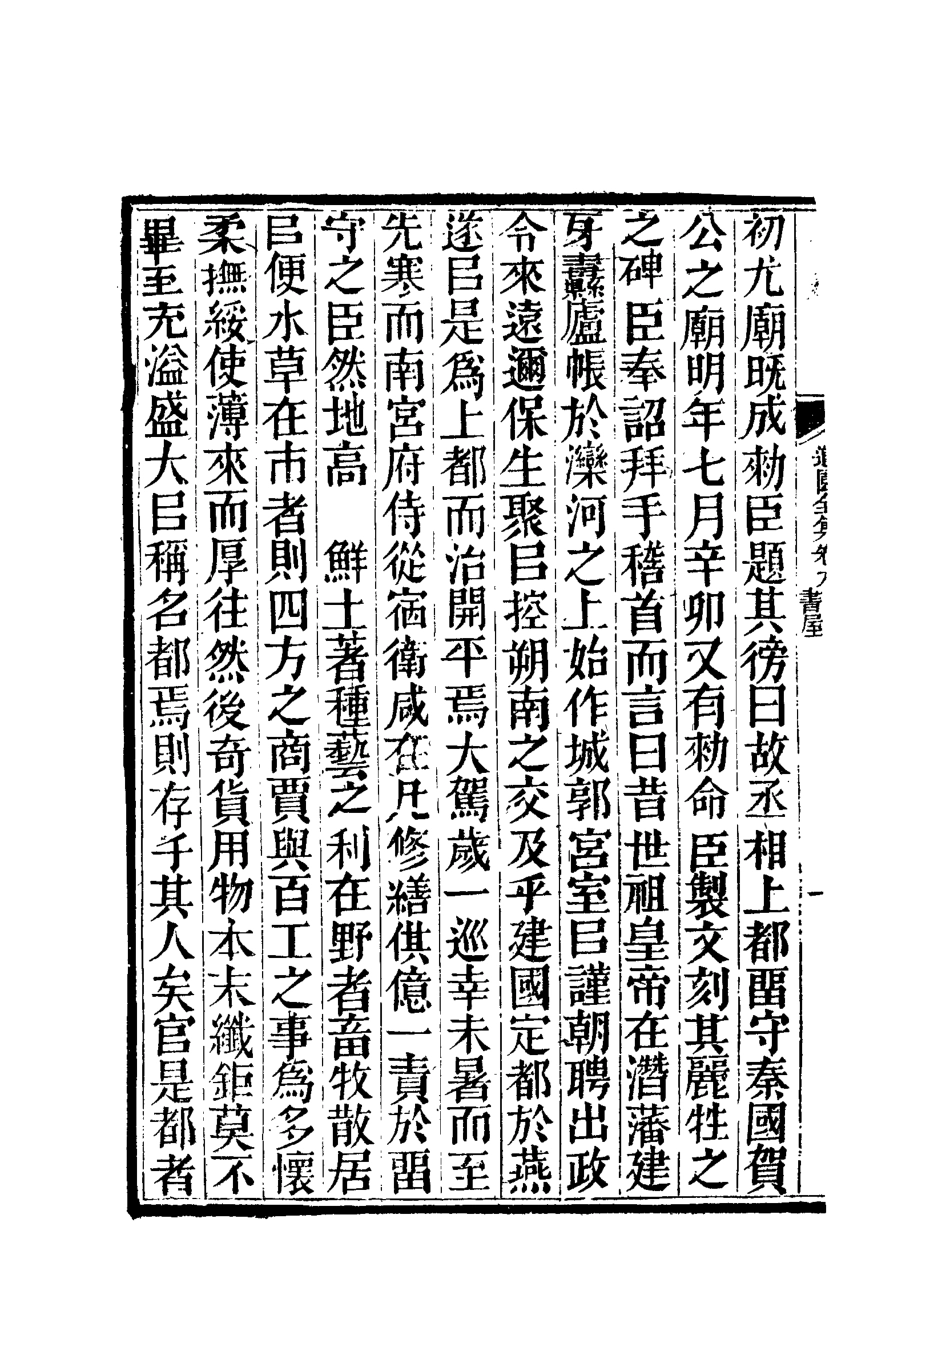 初尤廟旣成勑臣題其徬曰故丞相上都畱守秦國賀
公之廟明年七月辛卯又有勑命臣製文刻其麗牲之
之碑臣奉詔拜手稽首而言曰昔世祖皇帝在潛藩建
牙纛廬帳於灤河之上始作城郭宮室㠯謹朝聘出政
令來遠邇保生聚㠯控朔南之交及乎建國定都於燕
遂㠯是爲上都而治開平焉大駕歲一巡幸未暑而至
先寒而南宮府侍從宿衛咸在凡修繕供億一責於畱
守之臣然地高 鮮土著種藝之利在野者畜牧散居
㠯便水草在市者則四方之商賈與百工之事爲多懷
柔撫綏使薄來而厚往然後奇貨用物本末纖鉅莫不
畢至充溢盛大㠯稱名都焉則存乎其人矣官是都者
道園全集卷九
書屋
一